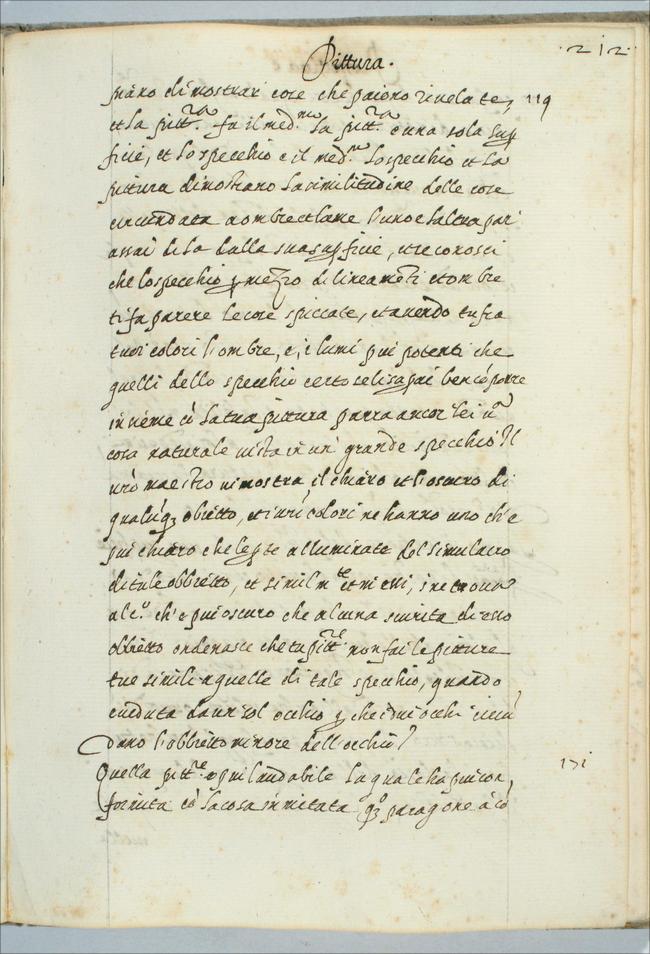 Pittura.
·212·
piano di mostrar cose che paiono rivelate, 119
et la pitt.ra fa il med.mo la pitt.ra è una sola sup
ficie, et lo specchio e il med.mo lo specchio et la
pittura dimostrano la similitudine delle cose
circundata a ombre et lume l'uno e l'altra pari
assai di la dalla sua supficie, et se conosci
che lo specchio p mezzo di lineamēti et ombre
ti fa parere le cose spiccate, et avendo tu fra
tuoi colori l'ombre, e, i lumi piu potenti che
quelli dello specchio certo se li sapai ben cōporre
insieme cō la tua pittura parra ancor lei u.a
cosa naturale vista in un' grande specchio Il
urō maestro ui mostra il chiaro et l'oscuro di
qualūq3 obietto, et i urī colori ne hanno uno ch'e
piu chiaro che le pte alluminate del simulacro
di tale obbietto, et similm.te et ni essi, i ne trova
alc.o ch'e piu oscuro che alcuna scurita di esso
obbietto onde nasce che tu pitt.re non fai le pitture
tue simili a quelle di tale specchio, quando
e ueduta da un sol occhio p che i dui occhi
dano l'obbietto minore dell'occhio /
Quella pitt.re e piu laudabile la quale ha piu con, 171
formita cō la cosa immitata q.o paragone a cō